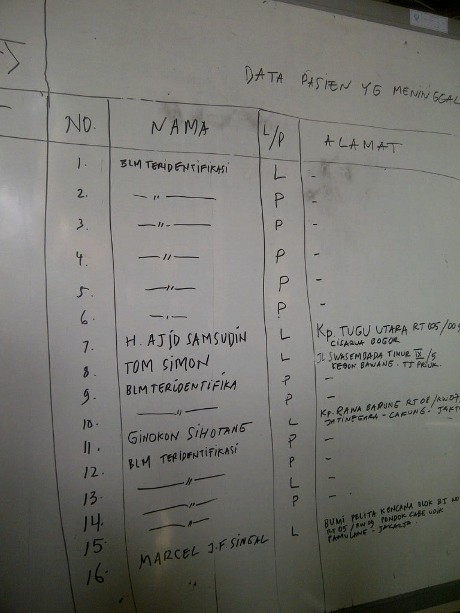 DATA PASIEN YG MENINGGAL
NO. NAMA L/P ALAMAT
1. BLM TERIDENTIFIKASI L -
2. — " — P -
3. — " — P -
4. — " — P -
5. — " — P -
6. — " — P -
7. H. AJID SAMSUDIN L Kp. TUGU UTARA RT 05/009
CISARUA BOGOR
8. TOM SIMON L JL SWASEMBADA TIMUR IX/5
KEBON BAWANG - TJ PRIUK.
9. BLM TERIDENTIFIKA P -
10. — " — P -
11. GINOKON SIHOTANG L Kp. RAWA BADUNG RT 08/RW07
JATINEGARA - CAKUNG - JAKT
12. BLM TERIDENTIFIKASI P -
13. — " — P -
14. — " — L -
15. — " — P -
16. MARCEL J.F. SINGAL L BUMI PELITA KENCANA BLOK
RT 05/RW09 PONDOK CABE
PAMULANG - JAKARTA.